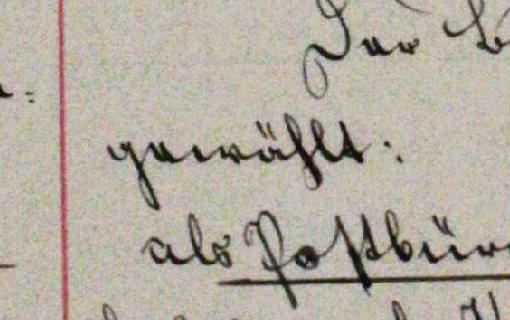 Der
gewählt:
als Postbür